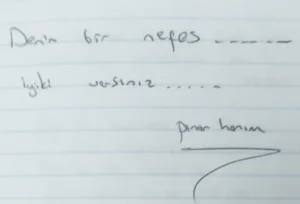 Derin bir nefes ......
iyiki varsınız .....
pınar hanım